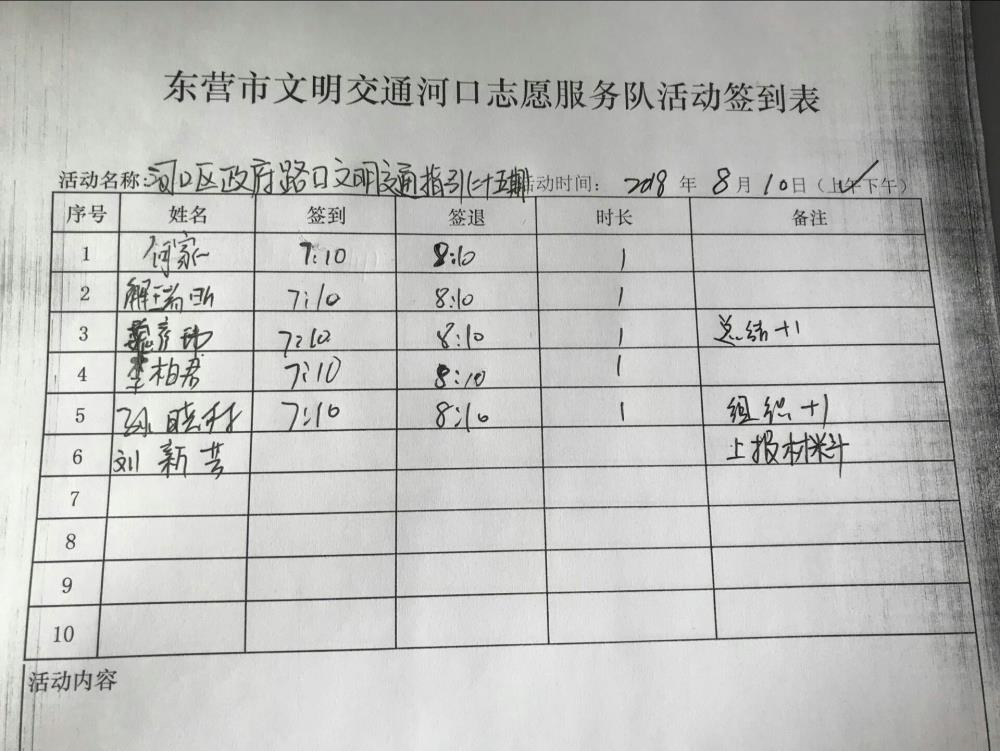 东营市文明交通河口志愿服务队活动签到表
活动名称:河口区政府路口文明交通指引(二十五期 活动时间: 2018 年 8 月 10 日（上午下午）
序号 姓名 签到 签退 时长 备注
1 何家一 7:10 8:10 1
2 解瑞 7:10 8:10 1
3 7:10 8:10 1 总结+1
4 李柏君 7:10 8:10 1
5 孙晓村 7:10 8:10 1 组织+1
6 刘新芸 上报材料
7
8
9
10
活动内容